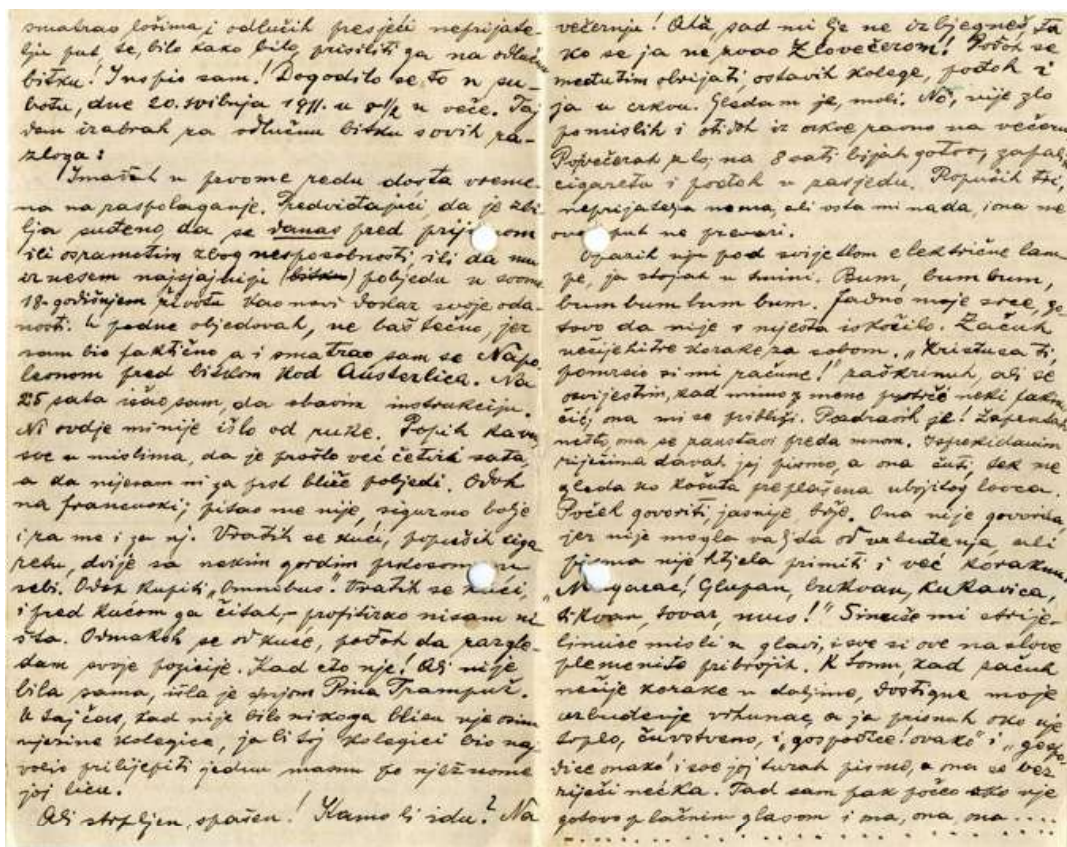 smatrao lošima, i odlučih presjeći neprijate-
lju put, te, bilo kako bilo, prisiliti ga na odlučnu
bitku! Inspio sam! Dogodilo se to u su-
botu, dne 20. svibnja 1911. u 8 1/2 u veče. Taj
dan izabrah za odlučnu bitku s ovih ra-
zloga:
Imađah u prvome redu dosta vreme-
na na raspolaganje. Predviđajući, da je zbi-
lja suđeno, da se danas pred
ili osramotim zbog nesposobnosti, ili da mu
iznesem najsjajniju (bitku) pobjedu u svome
18-godišnjem životu kao novi dokaz svoje oda-
nosti. U podne objedovah, ne baš tečno, jer
sam bio faktično, a i smatrao sam se Napo-
leonom pred bitkom kod Austerlica. Na
sata išao sam, da obavim instrukciju.
Ni ovdje mi nije išlo od ruke. Popih kavu,
sve u mislima, da je prošlo već četiri sata,
a da nijesam ni za prst bliže pobjedi. Odoh
na francuski; pitao me nije, sigurno bolje
i za me i za nj. Vratih se kući, popuših ciga-
retu, dvije sa nekim gordim prkosom
sebi. Odoh kupiti „Omnibus“. Vratih se kući,
i pred kućom ga čitah, – profitirao nisam ni-
šta. Odmakoh se od kuće, pođoh da razgle-
dam svoje pozicije. Kad eto nje! Ali nije
bila sama, išla je s njom Pina Trampuž.
U taj čas, kad nije bilo nikoga blizu nje osim
njezine kolegice, ja bi toj kolegici bio naj-
volio prilijepiti jednu masnu po nježnome
joj licu.
Ali strpljen, spašen! Kamo li idu? Na
večernju! Aha, sad mi lje ne izbjegneš, ta-
ko se ja ne zvao Zlovečerom! Pođoh se
međutim obrijati, ostavih kolege, pođoh i
ja u crkvu. Gledam je, moli. No, nije zlo
pomislih i otiđoh iz crkve ravno na večeru.
Povečerah zlo, na 8 sati bijah gotov, zapalih
cigaretu i pođoh u zasjedu. Popuših tri,
neprijatelja nema, ali osta mi nada, i ona me
ovaj put ne prevari.
Opazih nju pod svijetlom električne lam-
pe, ja stojah u tmini. Bum, bum bum,
bum bum bum bum. Jadno moje srce, go-
tovo da nije s mjesta iskočilo. Začuh
nečije hitre korake za sobom. „Kristusa ti,
pomrsio si mi račune!“ zaškrinuh, ali se
osvijestim, kad mimo mene protrči neki
čić, ona mi se približi. Pozdravih je! Zapentah
nešto, ona se zaustavi preda mnom. Isprekidanim
riječima davah joj pismo, a ona šuti, tek me
gleda ko košuta preplašena ubojitog lovca.
Počeh govoriti, jasnije, bolje. Ona nije govorila
jer nije mogla valjda od uzbuđenja, ali
pisma nije htjela primiti i već koraknu.
„Magarac! Glupan, bukvan, kukavica,
tikvan, tovar, mus!“ Sinuše mi strije-
linuše misli u glavi, i sve si ove naslove
plemenite pribrojih. K tomu, kad začuh
nečije korake u daljine, dostigne moje
uzbuđenje vrhunac, a ja prisnuh oko nje
toplo, čuvstveno, i „gospođice! ovako“ i „gospo-
đice onako! i sve joj turah pismo, a ona se bez
riječi nećka. Tad sam pak počeo oko nje
gotovo plačnim glasom i ma, ona, ona ....